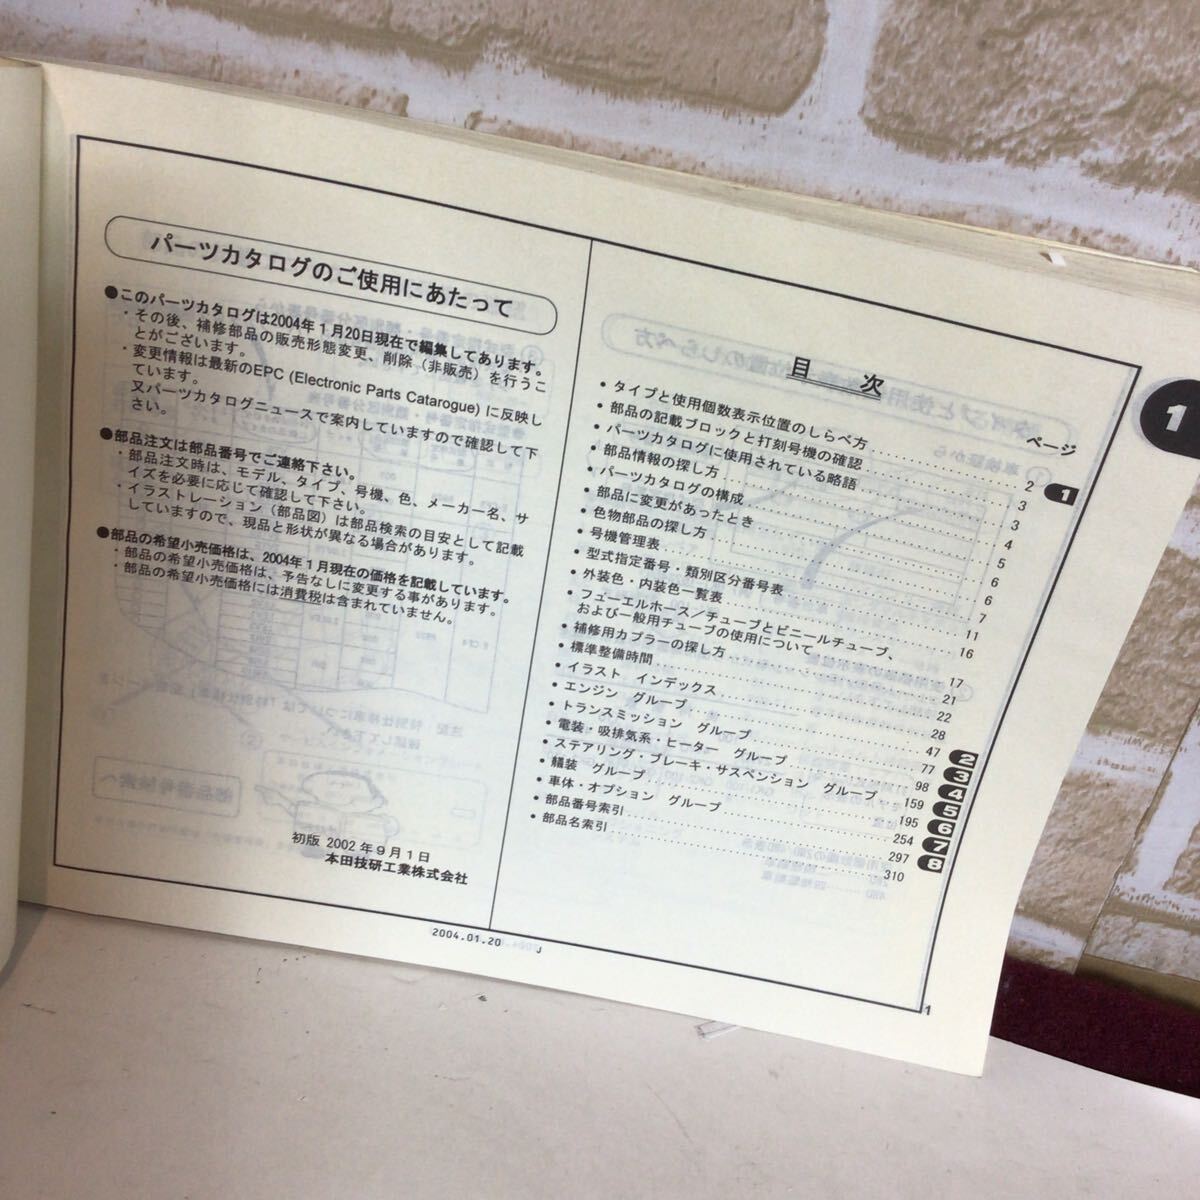 パーツカタログのご使用にあたって
●このパーツカタログは2004年1月20日現在で編集してあります。
・その後、補修部品の販売形態変更、削除（非販売）を行うこ
とがございます。
・変更情報は最新のEPC (Electronic Parts Catarogue) に反映し
ています。
又パーツカタログニュースで案内していますので確認して下
さい。
●部品注文は部品番号でご連絡下さい。
・部品注文時は、モデル、タイプ、号機、色、メーカー名、サ
イズを必要に応じて確認して下さい。
・イラストレーション（部品図）は部品検索の目安として記載
していますので、現品と形状が異なる場合があります。
●部品の希望小売価格は、2004年1月現在の価格を記載しています。
・部品の希望小売価格は、予告なしに変更する事があります。
・部品の希望小売価格には消費税は含まれていません。
初版 2002年9月1日
本田技研工業株式会社
目　次
ページ
・タイプと使用個数表示位置のしらべ方 2
・部品の記載ブロックと打刻号機の確認 3
・パーツカタログに使用されている略語 3
・部品情報の探し方 4
・パーツカタログの構成 5
・部品に変更があったとき 6
・色物部品の探し方 6
・号機管理表 7
・型式指定番号・類別区分番号表 11
・外装色・内装色一覧表 16
・フューエルホース／チューブとビニールチューブ、
および一般用チューブの使用について 17
・補修用カプラーの探し方 21
・標準整備時間 22
・イラスト　インデックス 28
・エンジン　グループ 47
・トランスミッション　グループ 77
・電装・吸排気系・ヒーター　グループ 98
・ステアリング・ブレーキ・サスペンション　グループ 159
・艤装　グループ 195
・車体・オプション　グループ 254
・部品番号索引 297
・部品名索引 310
1
2
3
4
5
6
7
8
1
2004.01.20　J
1